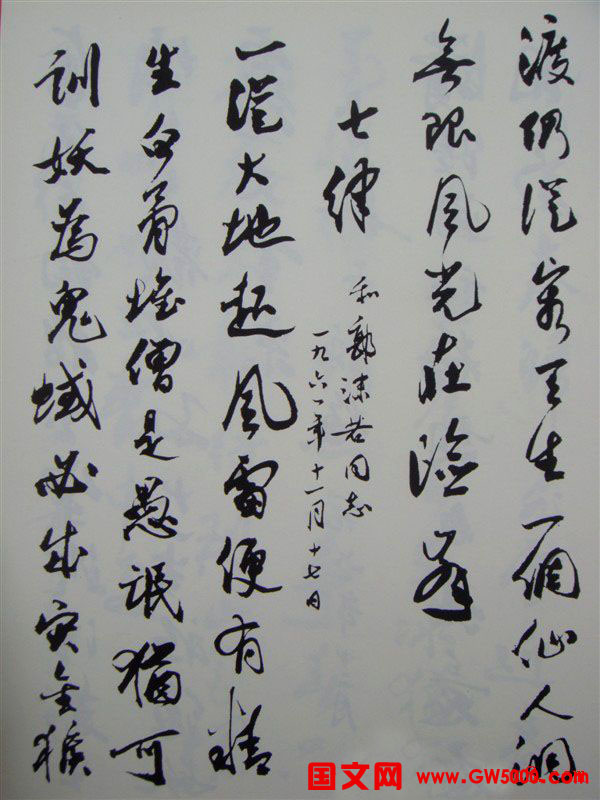 渡仍從容天生一個仙人洞
無限風光在險峰
七律
和郭沫若同志
一九六一年十一月十七日
一從大地起風雷便有精
生白骨堆僧是愚氓猶可
訓妖為鬼蜮必成灾金猴
国文网 www.GW5000.com